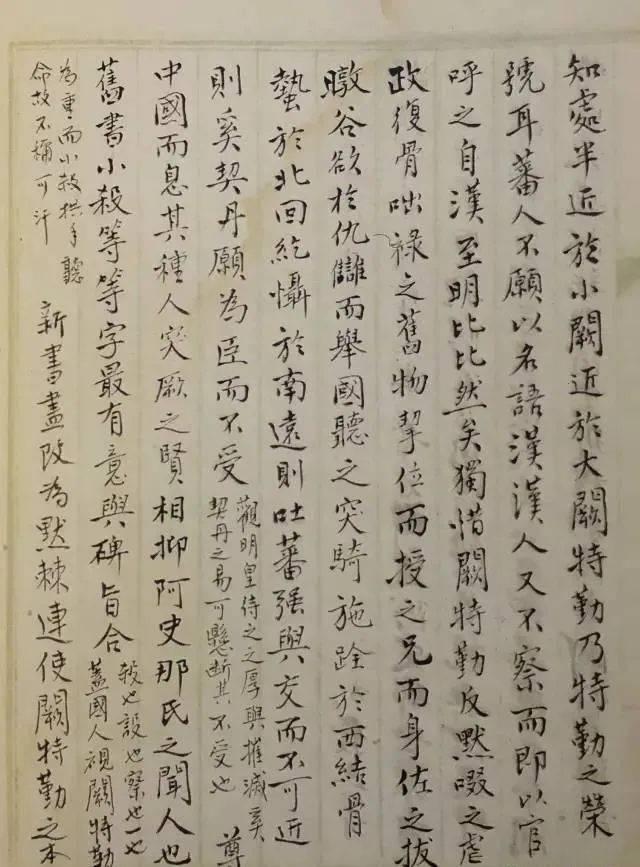 知處半近於小闕近於大闕特勤乃特勤之榮
號耳蕃人不願以名語漢漢人又不察而即以官
呼之自漢至明比比然矣獨惜闕特勤反默啜之虐
政復骨咄祿之舊物挈位而授之兄而身佐之拔
暾谷欲於仇讎而舉國聽之突騎施跧於西結骨
蟄於北回紇懾於南遠則吐蕃强與交而不可近
則奚契丹願為臣而不受觀明皇待之之厚與摧滅奚契丹之易可懸斷其不受也尊
中國而息其種人突厥之賢相抑阿史那氏之聞人也
舊書小殺等等字最有意與碑旨合殺也設也察也一也蓋國人視闕特勤
為重而小殺拱手聽命故不稱可汗新書盡改為默棘連使闕特勤之本